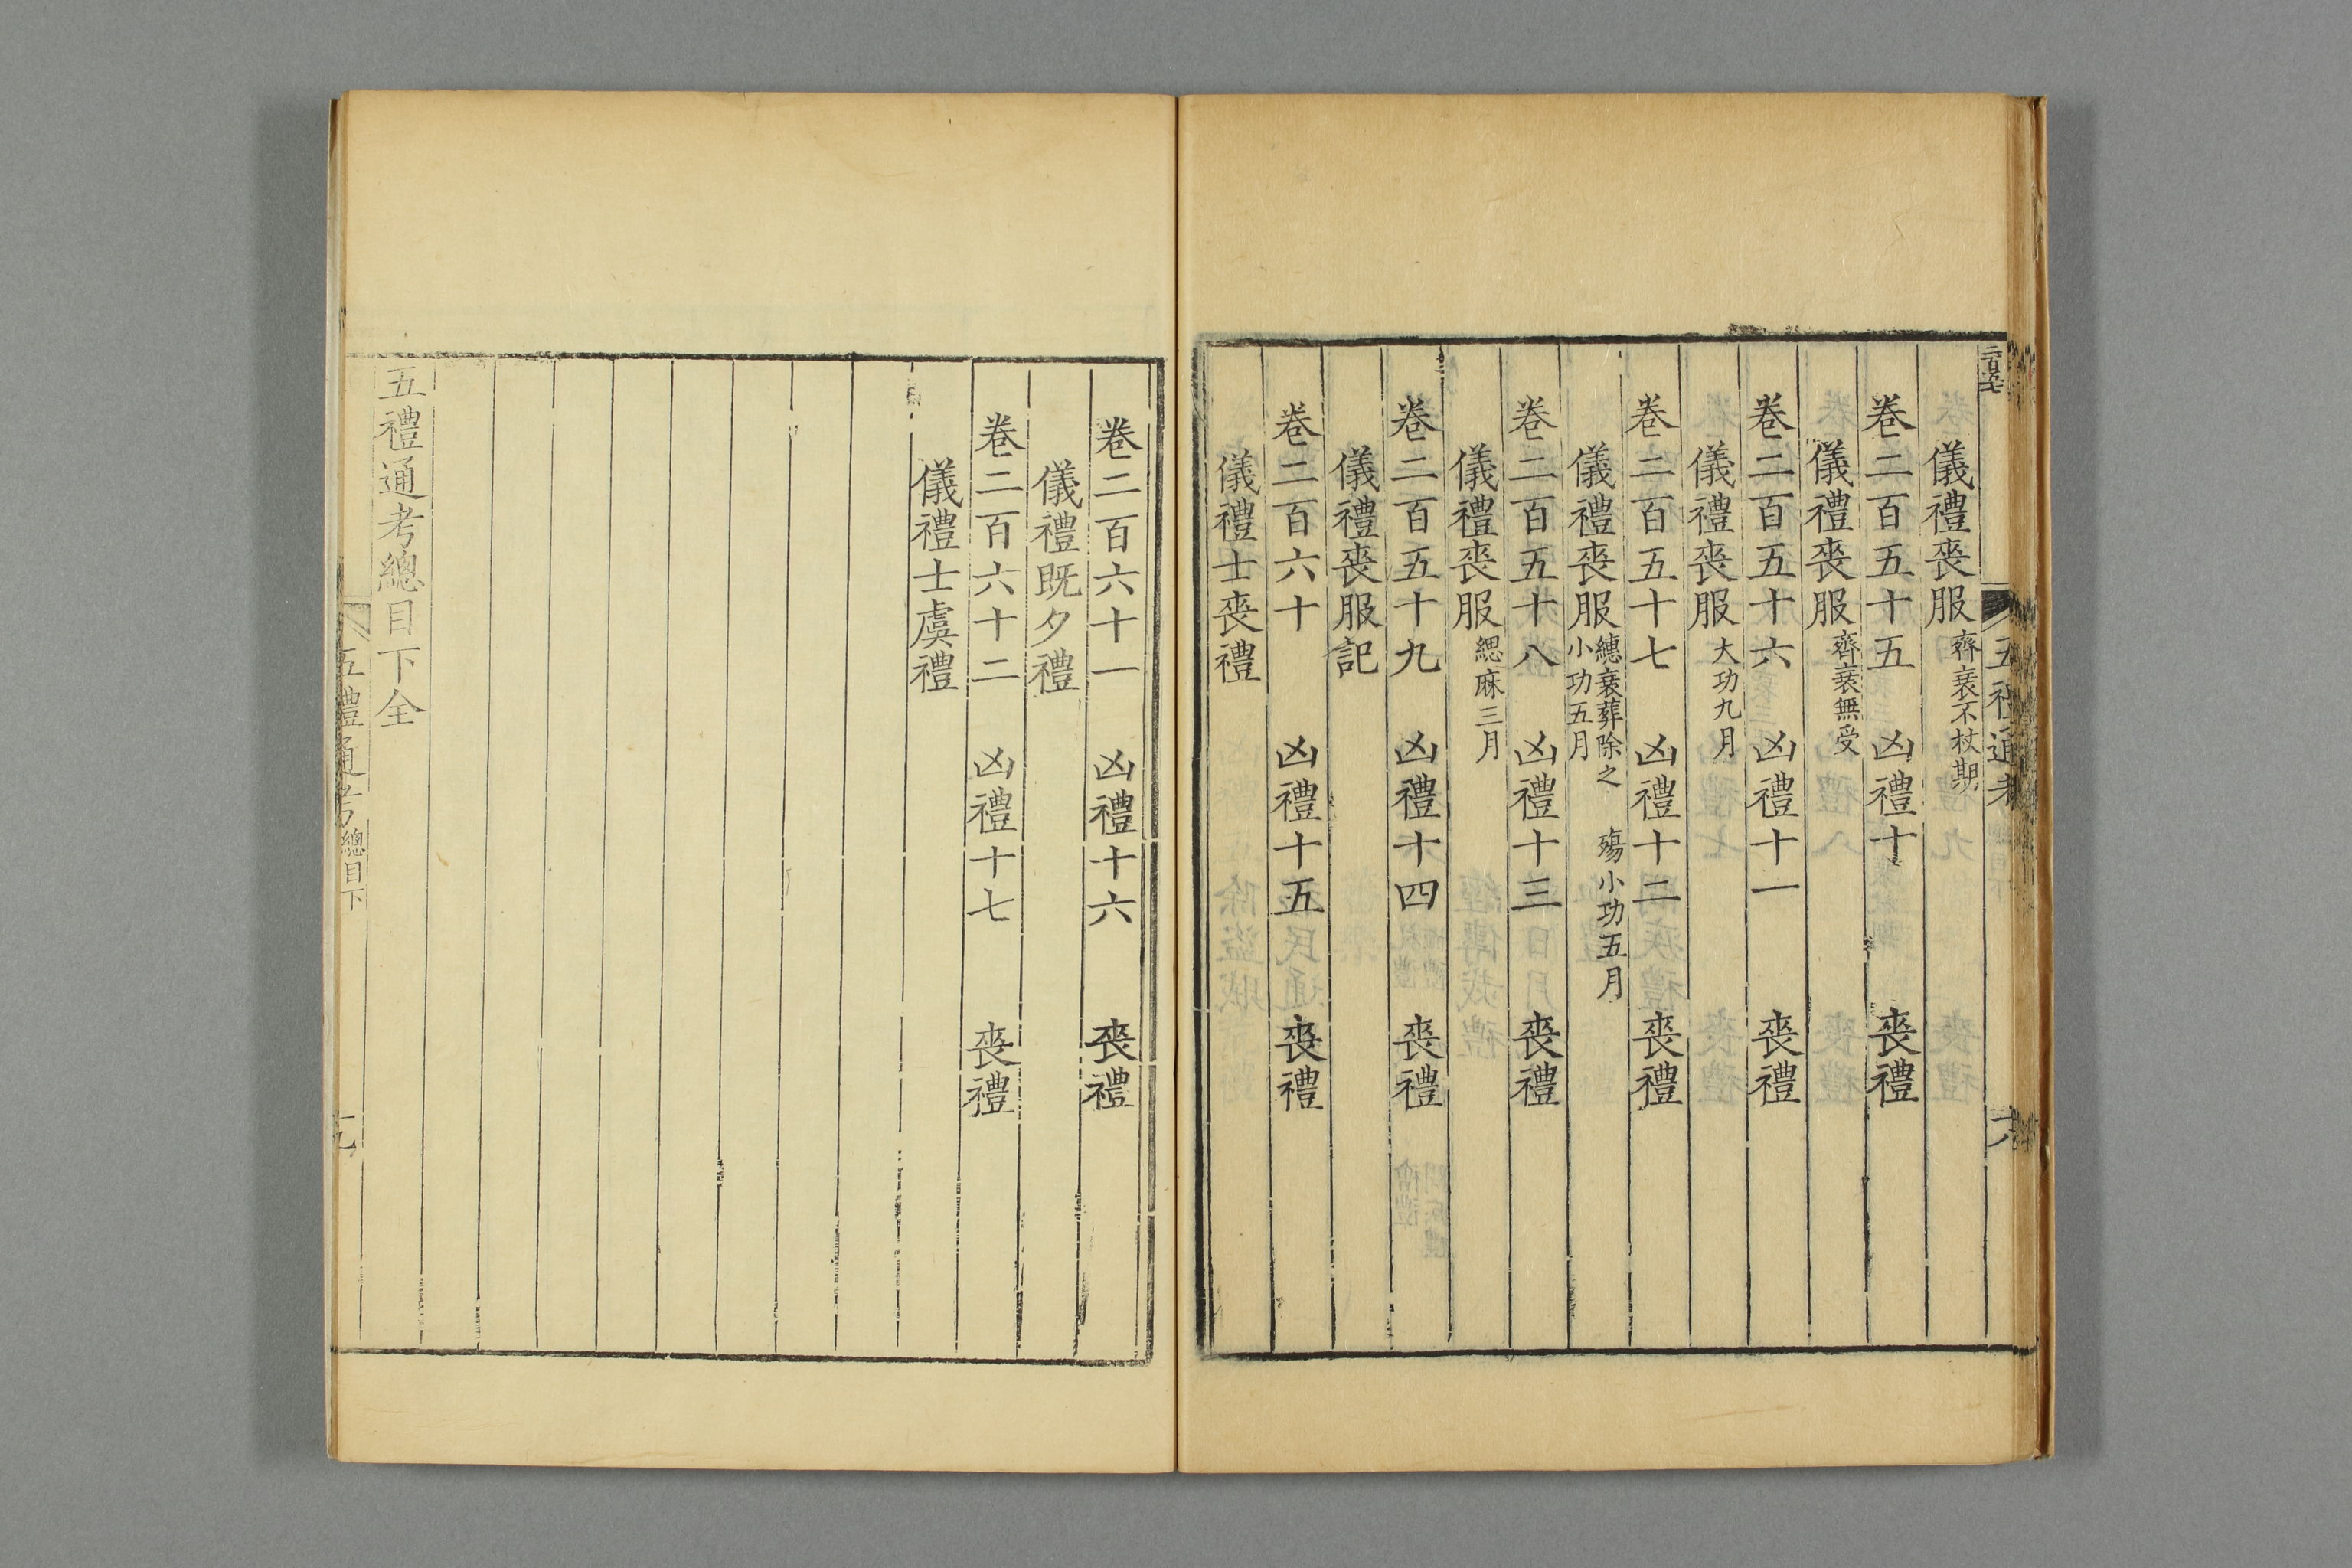 儀禮喪服 齊衰不杖期
卷二百五十五 凶禮十 喪禮
儀禮喪服 齊衰無受
卷二百五十六 凶禮十一 喪禮
儀禮喪服 大功九月
卷二百五十七 凶禮十二 喪禮
儀禮喪服 繐衰葬除之 殤小功五月
小功五月
卷二百五十八 凶禮十三 喪禮
儀禮喪服 緦麻三月
卷二百五十九 凶禮十四 喪禮
儀禮喪服記
卷二百六十 凶禮十五 喪禮
儀禮士喪禮
卷二百六十一 凶禮十六 喪禮
儀禮既夕禮
卷二百六十二 凶禮十七 喪禮
儀禮士虞禮
五禮通考總目下全
五禮通考 總目下